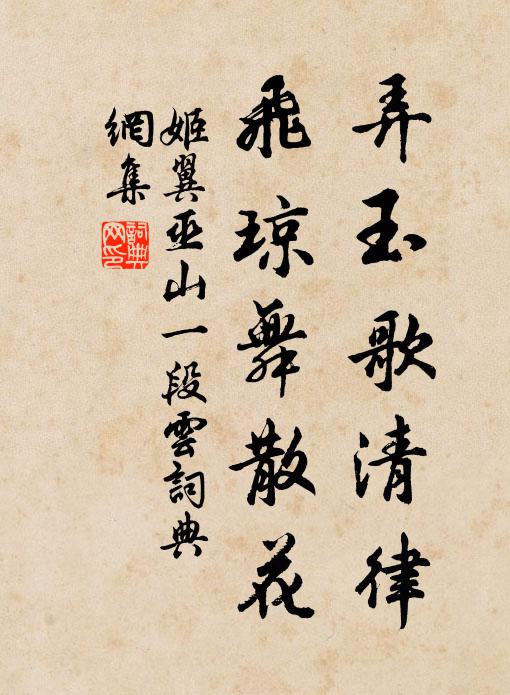 弄玉歌清律
飛琼舞散花
姬翼巫山一段雲詞典
網集
詞典
网印